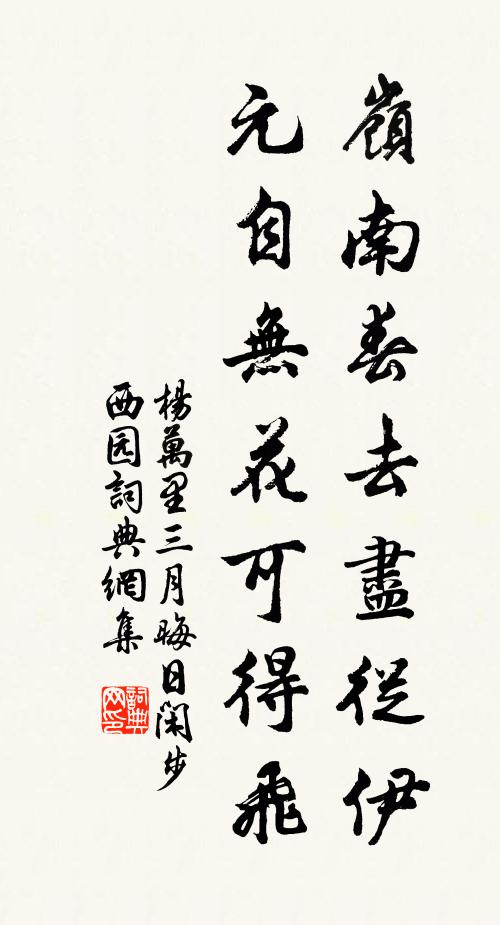 嶺南春去盡從伊
元自無花可得飛
楊萬里三月晦日閑步
西园詞典網集
詞典网印